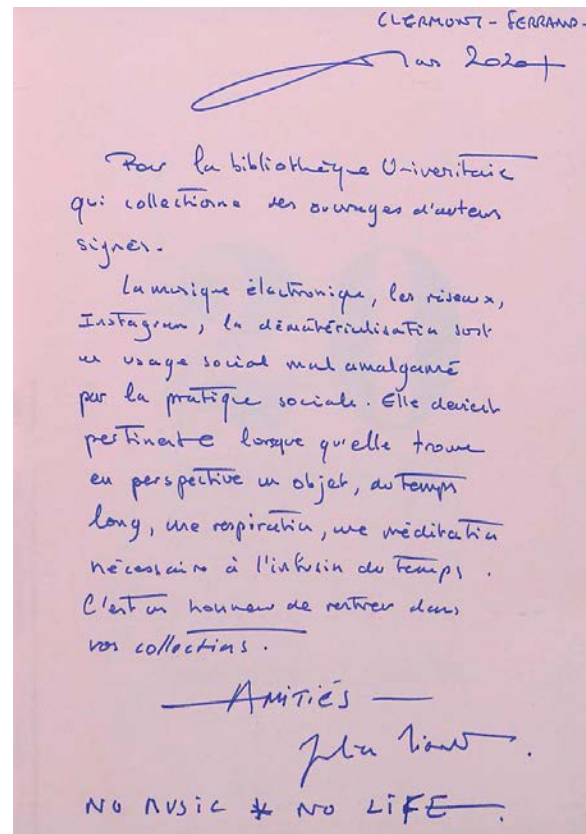 CLERMONT-FERRAND-
Mars 2024
Pour la bibliothèque Universitaire
qui collectionne des ouvrages d'auteurs
signés.
La musique électronique, les réseaux,
Instagram, la dématérialisation sont
un usage social mal amalgamé
par la pratique sociale. Elle devient
pertinente lorsque qu'elle trouve
en perspective un objet, du temps
long, une respiration, une méditation
nécessaire à l'infusion du temps.
C'est un honneur de rentrer dans
vos collections.
— AMITIÉS —
NO MUSIC * NO LIFE.